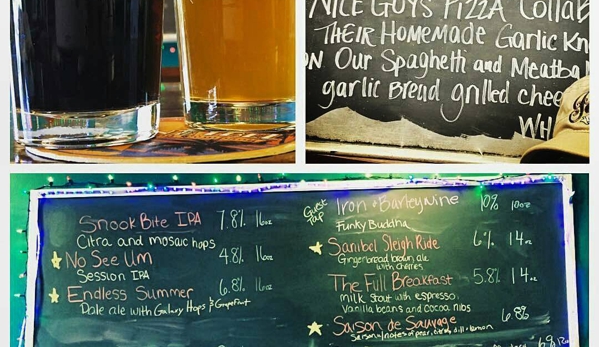 NICE GUYS PIZZA Collab
THEIR HOMEMADE Garlic Kn
ON Our Spaghetti and Meatba
garlic Bread grilled chee
WH
Snook Bite IPA 7.8% 16oz
Citra and mosaic hops
No See Um 4.8% 16oz
Session IPA
Endless Summer 6.8% 16oz
Pale ale with Galaxy Hops & Grapefruit
Guest Tap
Iron & Barleywine 10% 10oz
Funky Buddha
Sanibel Sleigh Ride 6% 14oz
Gingerbread brown ale
with cherries
The Full Breakfast 5.8% 14oz
Milk Stout with espresso,
Vanilla beans and cocoa nibs
Saison de Sauvage 6.8%